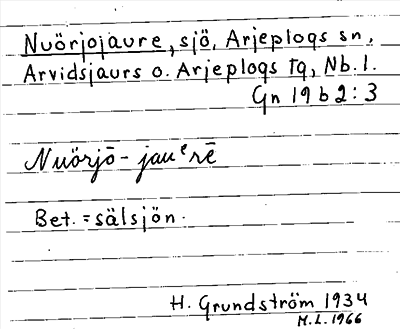 Nuörjojaure, sjö, Arjeplogs sn,
Arvidsjaurs o. Arjeplogs tg, Nb. l.
Gn 19 b 2:3
Nuörjō-jauᵉrē
Bet. = sälsjön.
H. Grundström 1934
M.L. 1966